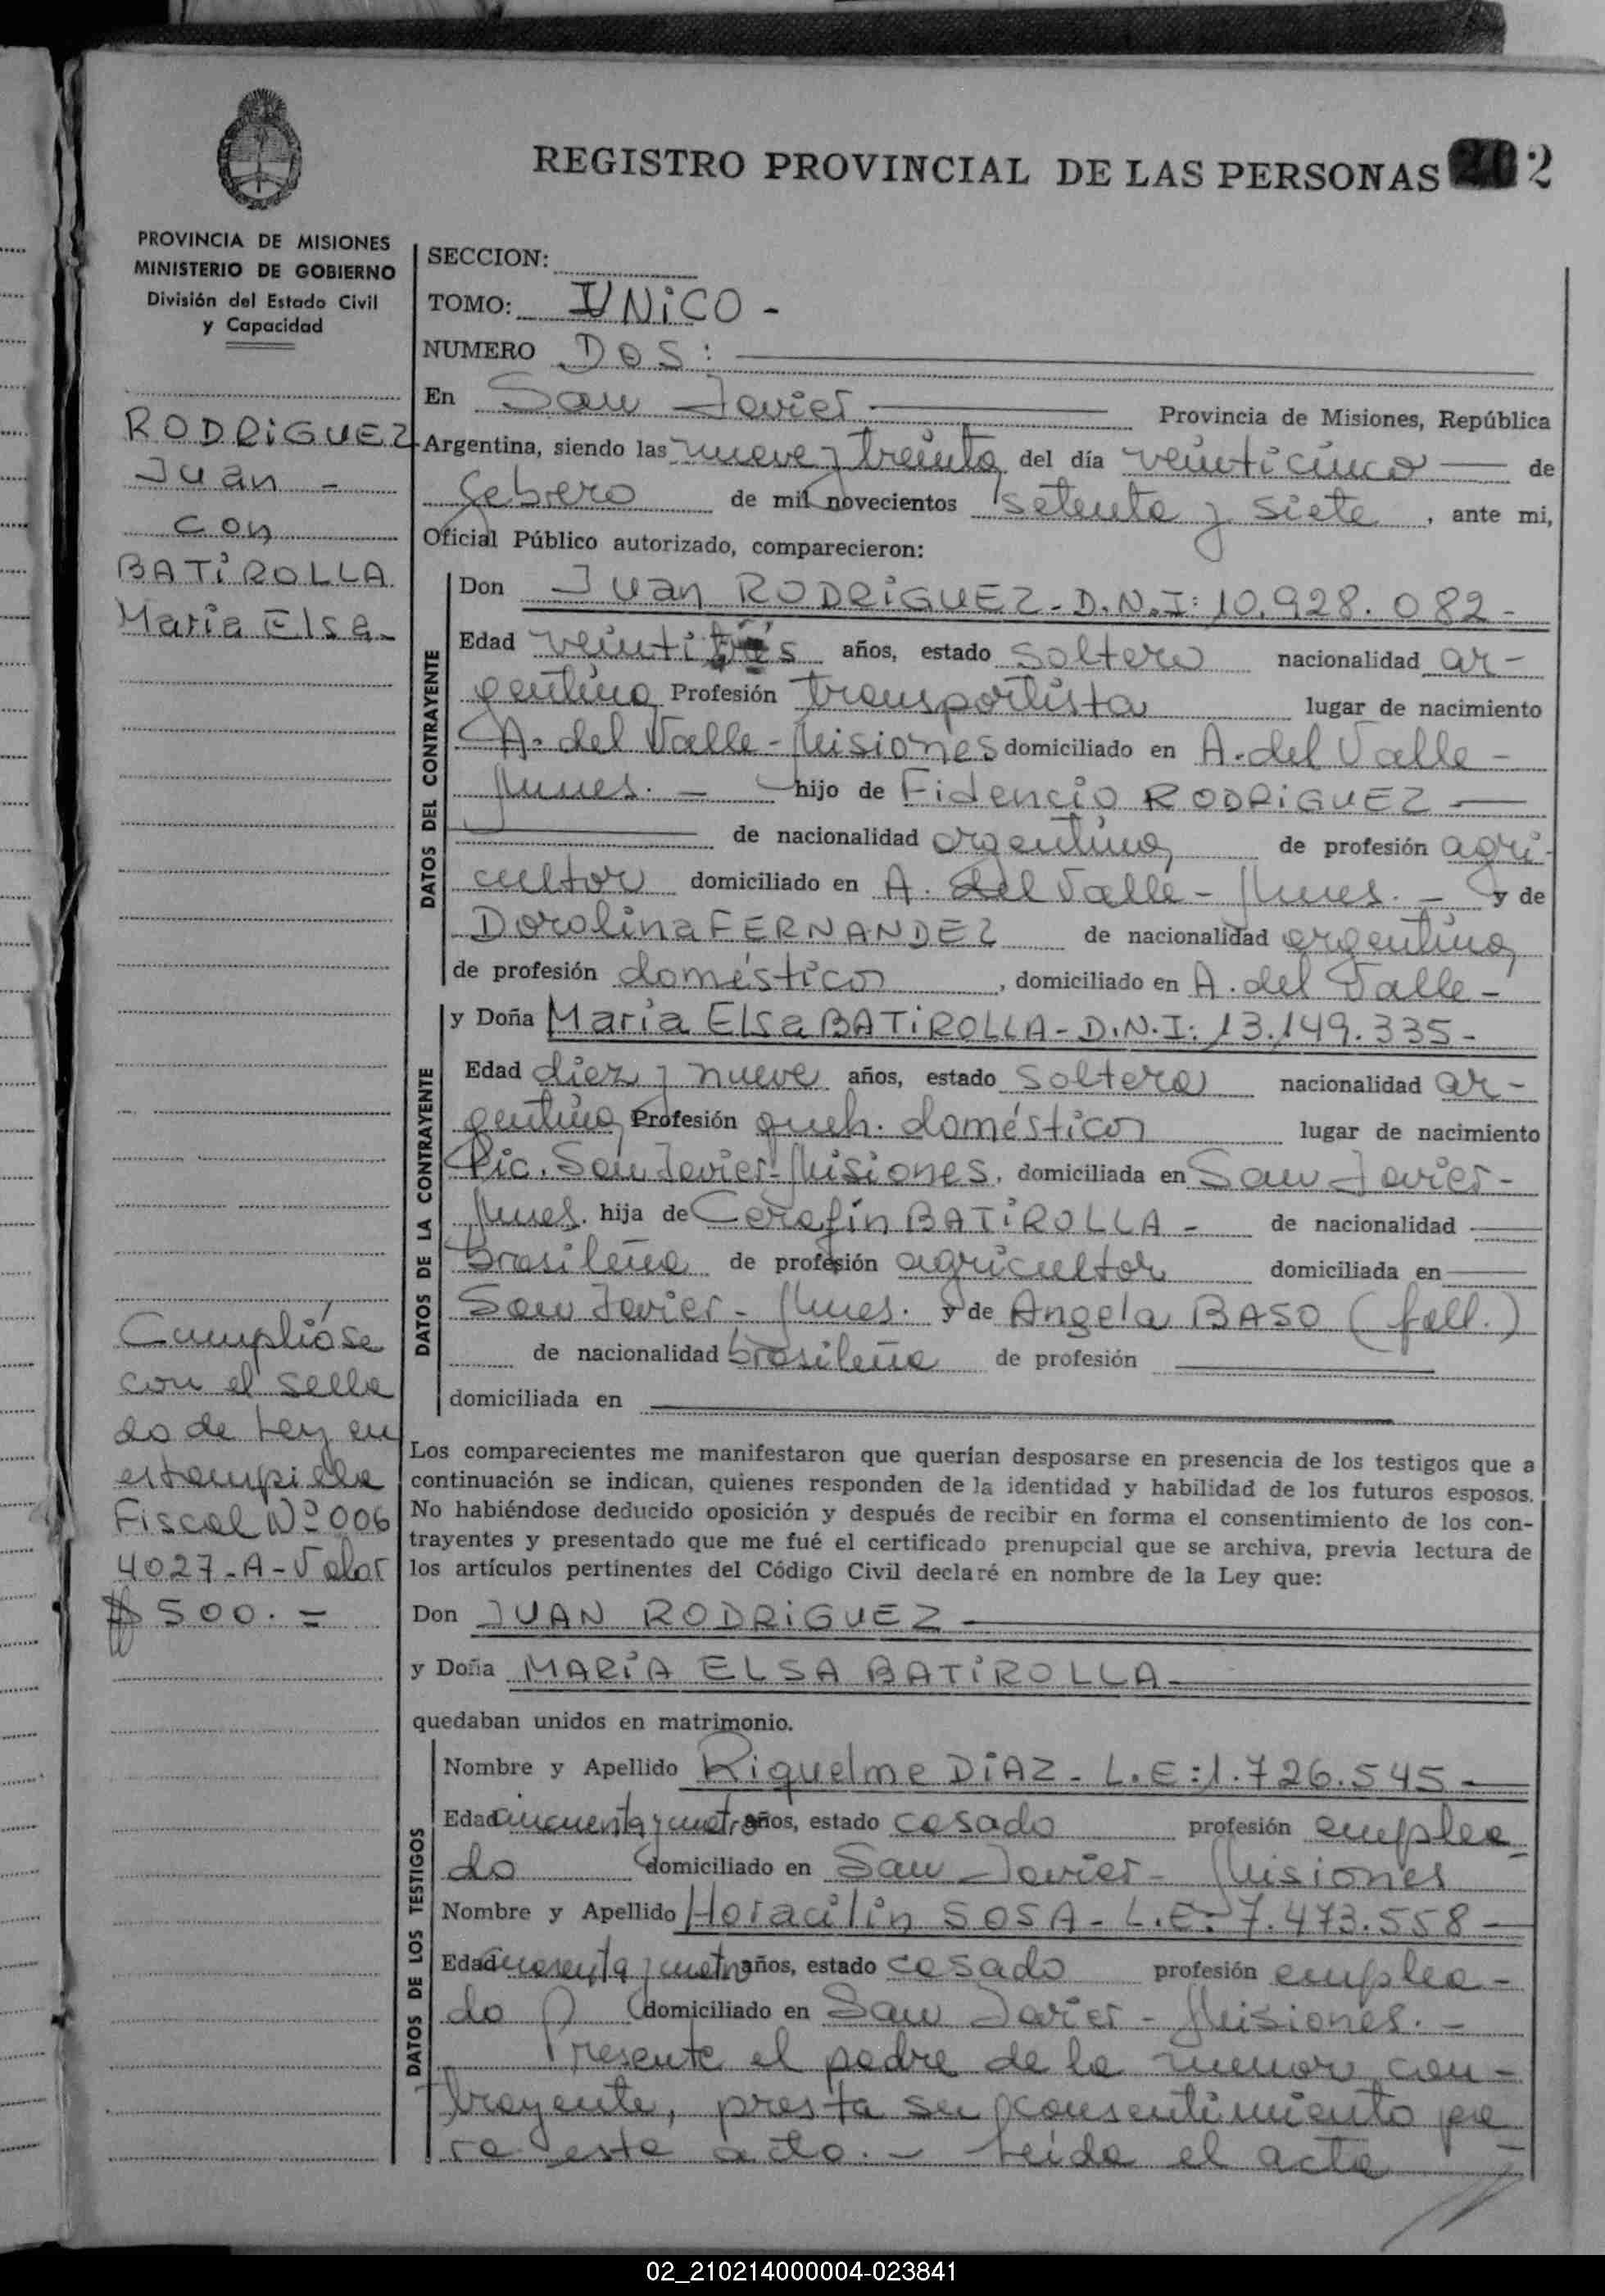 REGISTRO PROVINCIAL DE LAS PERSONAS 2
PROVINCIA DE MISIONES
MINISTERIO DE GOBIERNO
División del Estado Civil
y Capacidad
RODRIGUEZ
Juan -
con
BATIROLLA
Maria Elsa-
Cumplióse
con el sella
do de Ley en
estampilla
Fiscal Nº 006
4027-A-Valor
$ 500.=
SECCION:
TOMO: UNICO -
NUMERO DOS:
En San Javier Provincia de Misiones, República
Argentina, siendo las nueve y treinta del día veinticinco de
febrero de mil novecientos setenta y siete, ante mi,
Oficial Público autorizado, comparecieron:
DATOS DEL CONTRAYENTE
Don Juan RODRIGUEZ - D.N.I: 10.928.082-
Edad veintitrés años, estado soltero nacionalidad ar-
gentina Profesión transportista lugar de nacimiento
A. del Valle - Misiones domiciliado en A. del Valle -
Mnes. - hijo de Fidencio RODRIGUEZ
de nacionalidad argentina de profesión agri-
cultor domiciliado en A. del Valle - Mnes. - y de
Dorolina FERNANDEZ de nacionalidad argentina
de profesión doméstica, domiciliado en A. del Valle -
DATOS DE LA CONTRAYENTE
y Doña Maria Elsa BATIROLLA - D.N.I: 13.149.335-
Edad diez y nueve años, estado soltera nacionalidad ar-
gentina Profesión queh. doméstico lugar de nacimiento
Pic. San Javier-Misiones, domiciliada en San Javier-
Mnes. hija de Cerafín BATIROLLA - de nacionalidad
brasileña de profesión agricultor domiciliada en
San Javier - Mnes. y de Angela BASO (fall.)
de nacionalidad brasileña de profesión
domiciliada en
Los comparecientes me manifestaron que querían desposarse en presencia de los testigos que a
continuación se indican, quienes responden de la identidad y habilidad de los futuros esposos.
No habiéndose deducido oposición y después de recibir en forma el consentimiento de los con-
trayentes y presentado que me fué el certificado prenupcial que se archiva, previa lectura de
los artículos pertinentes del Código Civil declaré en nombre de la Ley que:
Don JUAN RODRIGUEZ
y Doña MARÍA ELSA BATIROLLA
quedaban unidos en matrimonio.
DATOS DE LOS TESTIGOS
Nombre y Apellido Riquelme DIAZ - L.E: 1.726.545-
Edad cincuenta y cuatro años, estado casado profesión emplea-
do domiciliado en San Javier - Misiones
Nombre y Apellido Horacilin SOSA - L.E: 7.473.558-
Edad cuarenta y cuatro años, estado casado profesión emplea-
do domiciliado en San Javier - Misiones. -
Presente el padre de la menor con-
trayente, presta su consentimiento pa
ra este acto. - Leída el acta
02_210214000004-023841